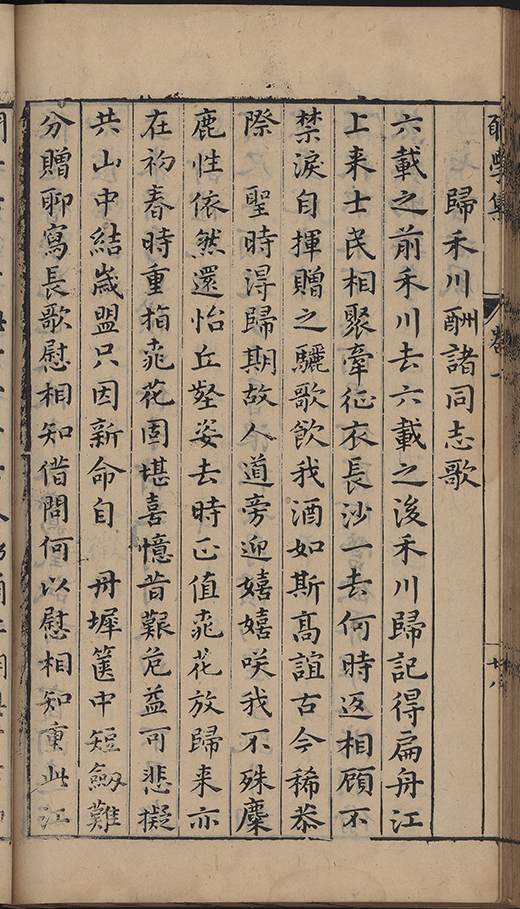 學集 卷一
歸禾川酬諸同志歌
六載之前禾川去六載之後禾川歸記得扁舟江
上来士民相聚牽征衣長沙一去何時返相顧不
禁淚自揮贈之驪歌飲我酒如斯髙誼古今稀恭
際 聖時淂歸期故人道旁迎嬉嬉咲我不殊麋
鹿性依然還怡丘壑姿去時正值桃花放歸来亦
在初春時重指桃花固堪喜憶昔艱危益可悲擬
共山中結歲盟只因新命自 丹墀篋中短劔難
分贈聊寫長歌慰相知借問何以慰相知重此江